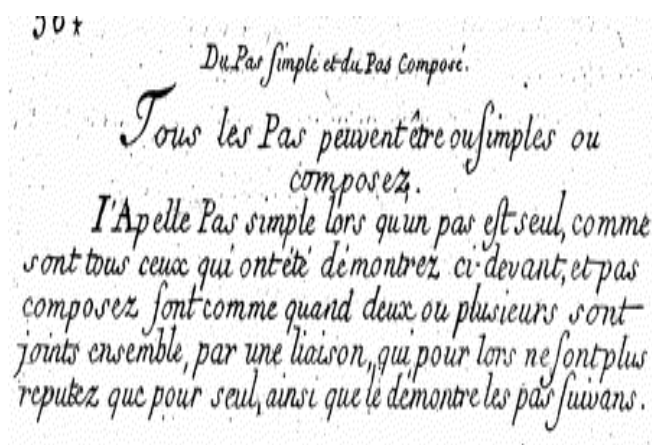 Du Pas simple et du Pas Composé.
Tous les Pas peuvent être ou simples ou
composez.
J'Apelle Pas simple lors qu'un pas est seul, comme
sont tous ceux qui ont été démontrez ci-devant, et pas
composez sont comme quand deux ou plusieurs sont
joints ensemble, par une liaison, qui pour lors ne sont plus
reputez que pour seul, ainsi que le démontre les pas suivans.